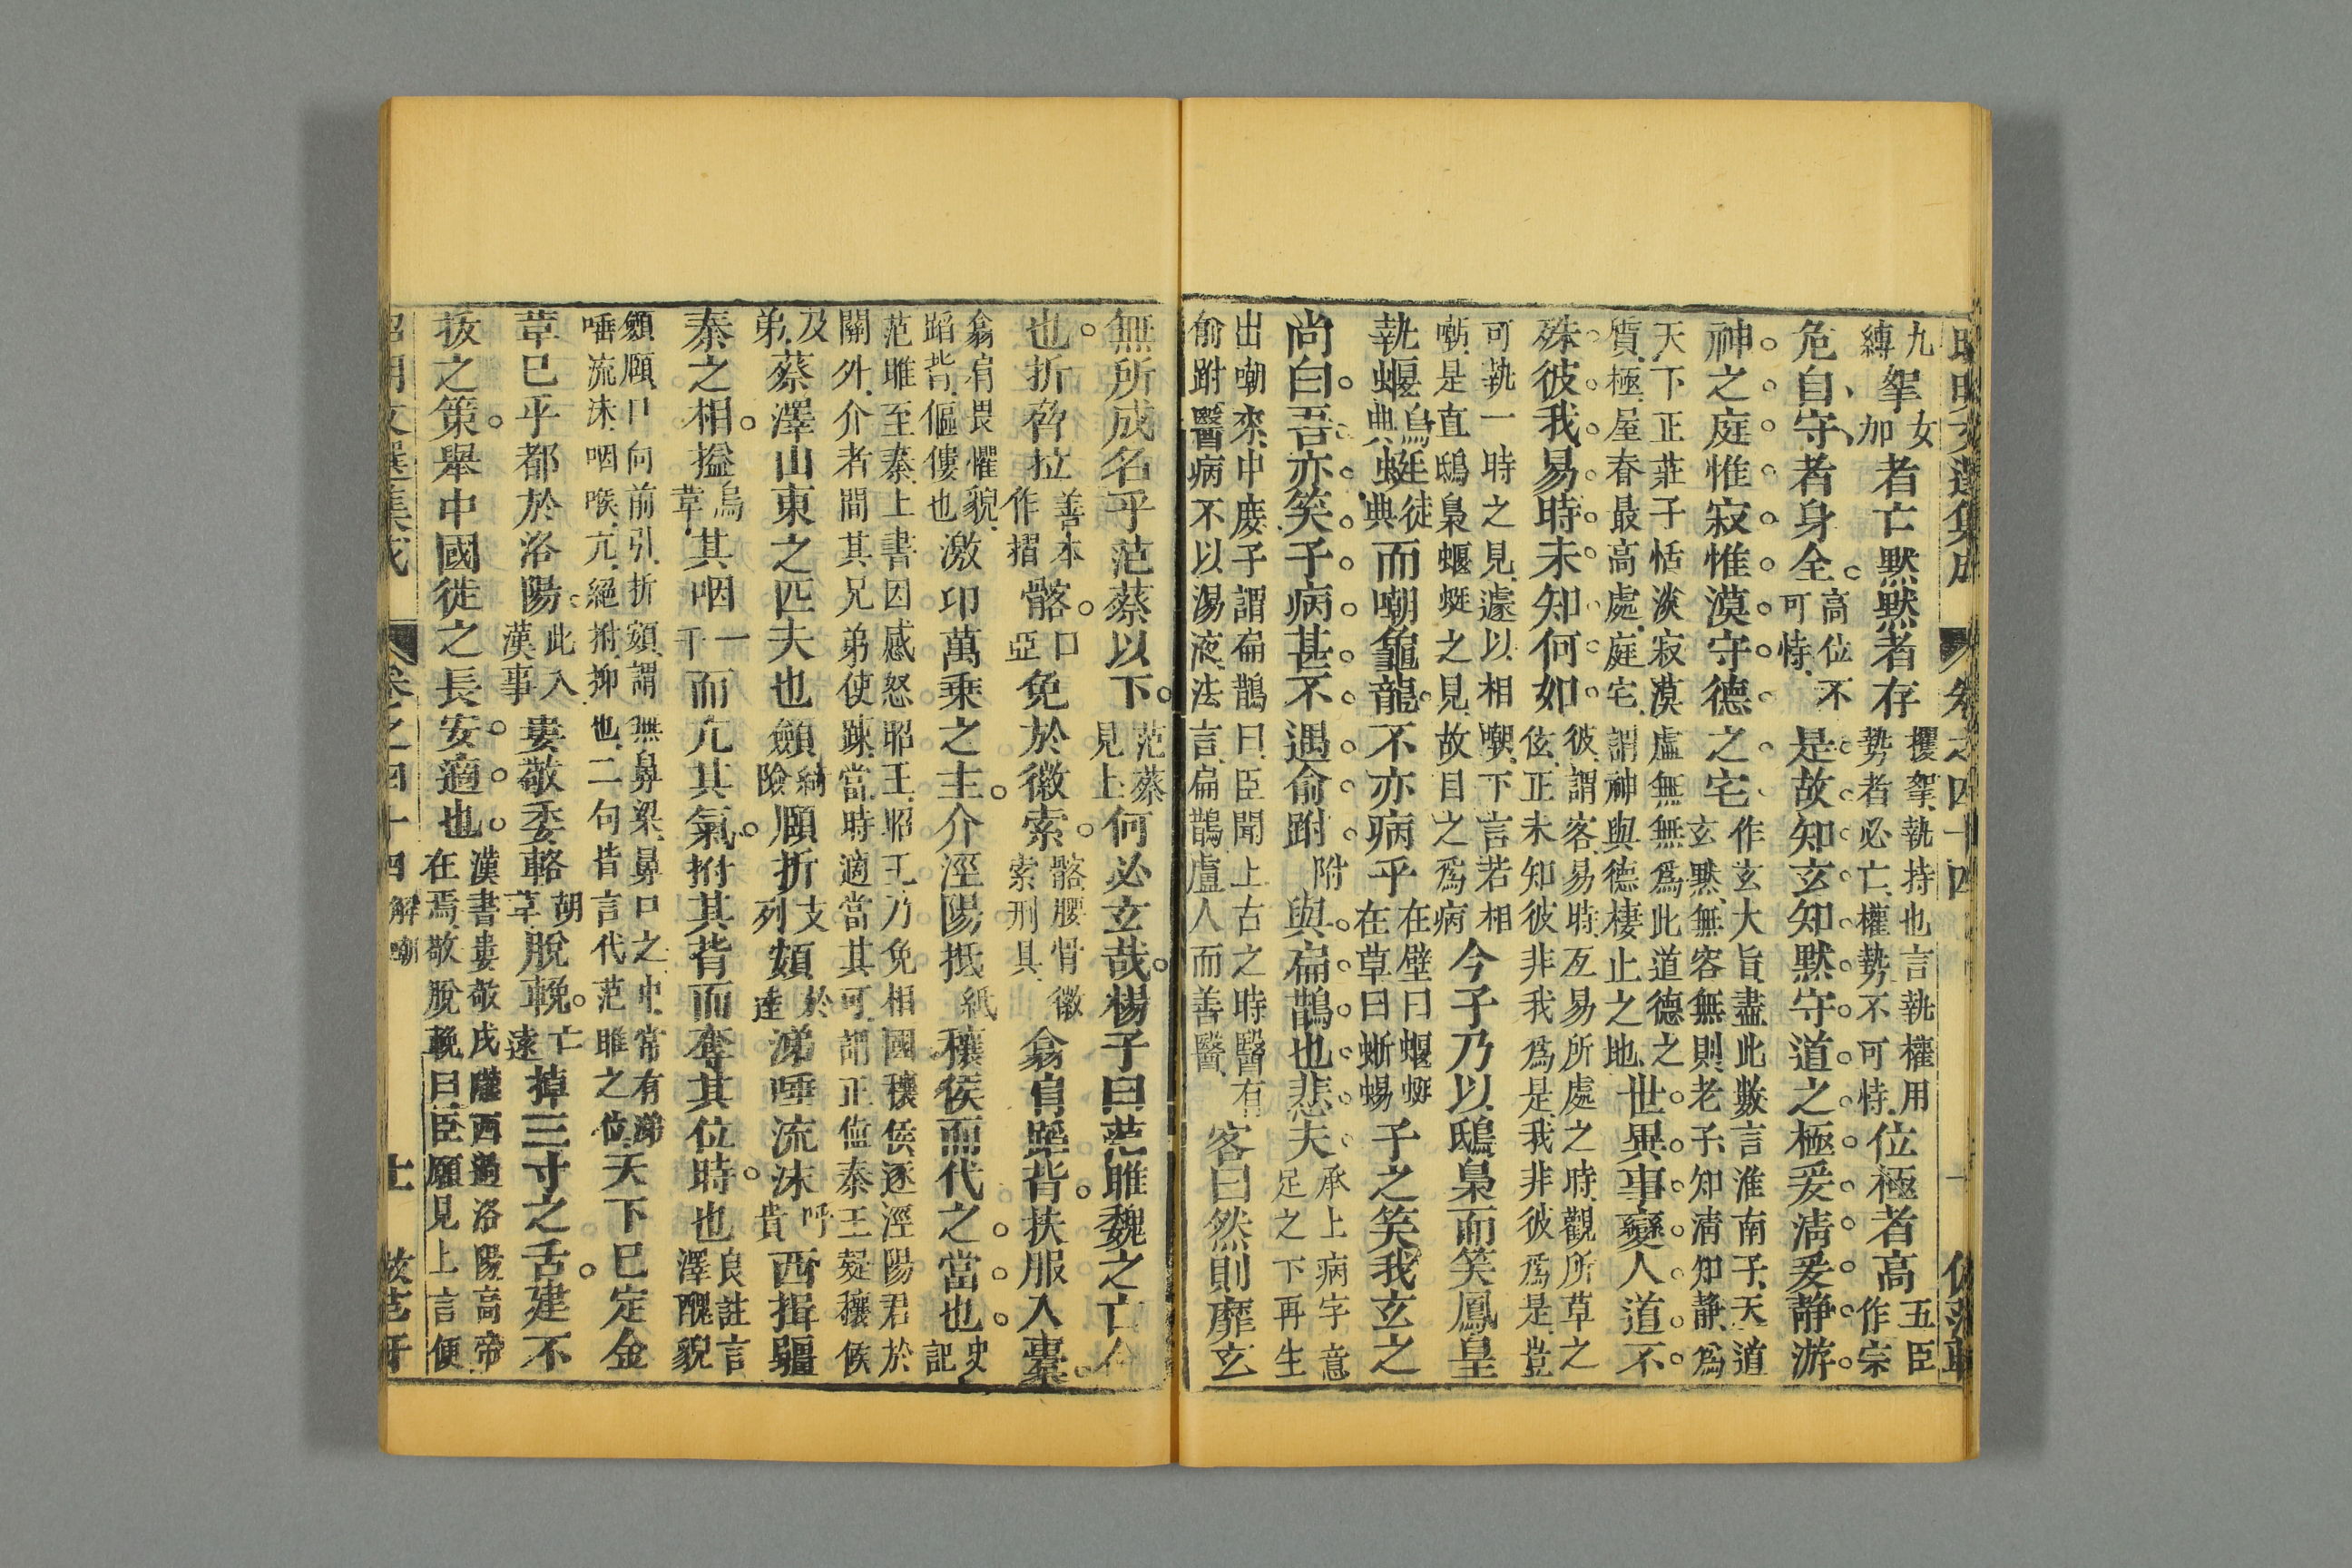 昭明文選集成 卷之四十四
九縛挐女加者亡默默者存攫挐執持也言執權用勢者必亡權勢不可恃位極者高五臣作宗
危自守者身全高位不可恃是故知玄知默守道之極爰清爰靜游
神之庭惟寂惟漠守德之宅作玄大旨盡此數言淮南子天道玄默無容無則老子知清知靜為
天下正莊子恬淡寂漠虛無無為此道德之質極屋春最高處庭宅謂神與德棲止之地世異事變人道不
殊彼我易時未知何如彼謂客易時互易所處之時觀所草之伭正未知彼非我為是我非彼為是豈
可執一時之見遽以相嘲下言若相嘲是直鴟梟蝘蜓之見故目之為病今子乃以鴟梟而笑鳳皇
執蝘烏典蜓徒典而嘲龜龍不亦病乎在壁曰蝘蜓在草曰蜥蜴子之笑我玄之
尚白吾亦笑子病甚不遇俞跗附與扁鵲也悲夫承上病字意足之下再生
出嘲來中庱子謂扁鵲曰臣聞上古之時醫有俞跗醫病不以湯液法言扁鵲盧人而善醫客曰然則靡玄
無所成名乎范蔡以下范蔡見上何必玄哉楊子曰范雎魏之亡人
也折脅拉善本作摺髂口亞免於徽索髂腰骨徽索刑具翕肩蹈背扶服入橐
翕肩畏懼貌蹈背傴僂也激卬萬乘之主介涇陽抵紙穰侯而代之當也史記
范雎至秦上書因感怒昭王昭王乃免相國穰侯逐涇陽君於關外介者間其兄弟使疎當時適當其可謂正值秦王疑穰侯
及弟蔡澤山東之匹夫也顩綺險頤折支列頞於達涕唾流沫呼貴西揖彊
秦之相搤烏革其咽一千而亢其氣拊其背而奪其位時也良註言澤醜貌
顩頤口向前引折頞謂無鼻梁鼻口之中常有涕唾流沫咽喉亢絕拊抑也二句皆言代范雎之位天下已定金
革已乎都於洛陽此入漢事婁敬委輅胡革脫輓亡遠掉三寸之舌建不
拔之策舉中國徙之長安適也漢書婁敬戍隴西過洛陽高帝在焉敬脫輓曰臣願見上言便
昭明文選集成 卷之四十四 解嘲 十